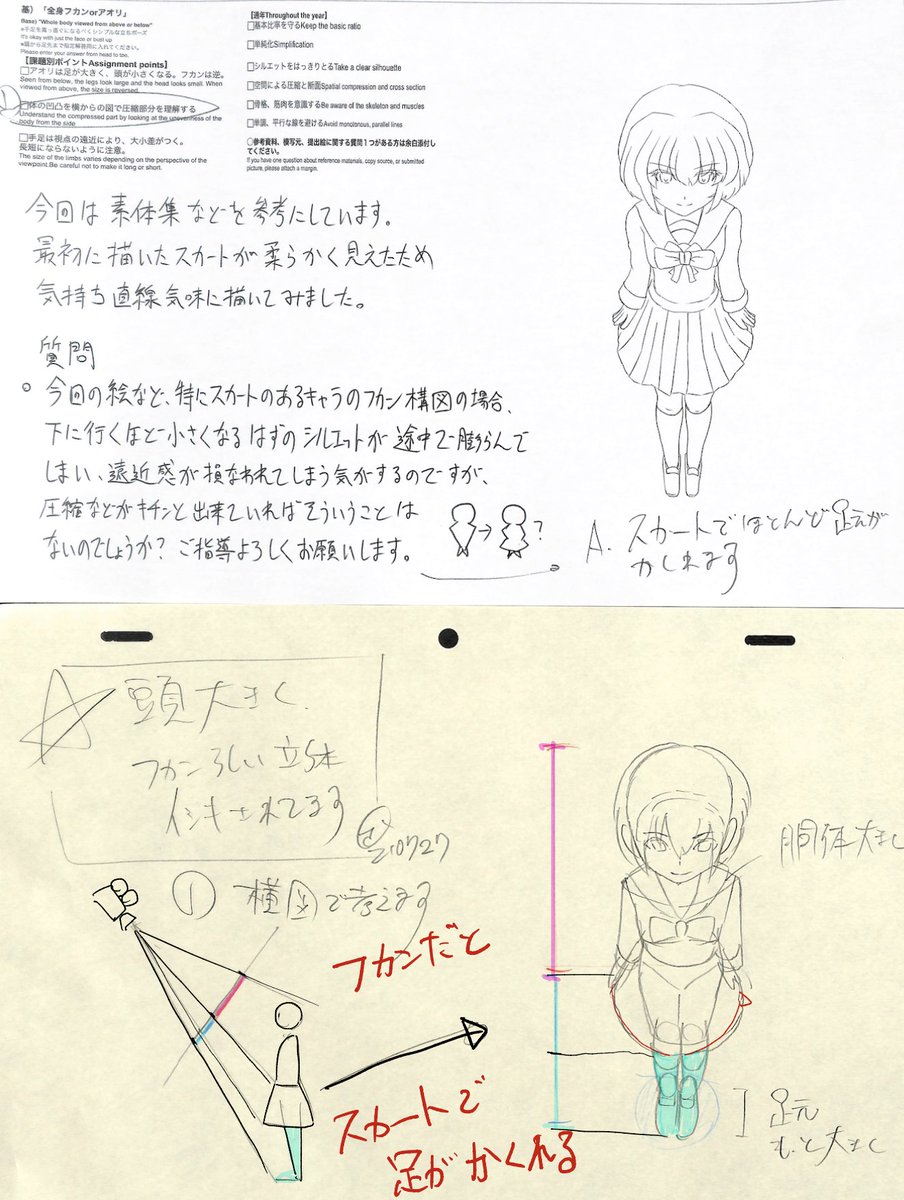 基）「全身フカンorアオリ」
Basic) "Whole body viewed from above or below"
※手足を真っ直ぐになるべくシンプルな立ちポーズ
It's okay with just the face or bust up
※頭から足先まで指定解答用に入れてください。
Please enter your answer from head to toe.
【課題別ポイントAssignment points】
□アオリは足が大きく、頭が小さくなる。フカンは逆。
Seen from below, the legs look large and the head looks small. When
viewed from above, the size is reversed.
□体の凹凸を横からの図で圧縮部分を理解する
Understand the compressed part by looking at the unevenness of the
body from the side
□手足は視点の遠近により、大小差がつく。
長短にならないように注意。
The size of the limbs varies depending on the perspective of the
viewpoint.Be careful not to make it long or short.
【通年Throughout the year】
□基本比率を守るKeep the basic ratio
□単純化Simplification
□シルエットをはっきりとるTake a clear silhouette
□空間による圧縮と断面Spatial compression and cross section
□骨格、筋肉を意識するBe aware of the skeleton and muscles
□単調、平行な線を避けるAvoid monotonous, parallel lines
○参考資料、模写元、提出絵に関する質問１つがある方は余白添付し
てください。
If you have one question about reference materials, copy source, or submitted
picture, please attach a margin.
今回は素体集などを参考にしています。
最初に描いたスカートが柔らかく見えたため
気持ち直線気味に描いてみました。
質問
。今回の絵など、特にスカートのあるキャラのフカン構図の場合、
下に行くほど小さくなるはずのシルエットが途中で膨らんで
しまい、遠近感が損なわれてしまう気がするのですが、
圧縮などがキチンと出来ていればそういうことは
ないのでしょうか？ご指導よろしくお願いします。
→ ?
A. スカートでほとんど足元が
かくれます
頭大きく、
フカンらしい立ち体
イシキされてます
10727
① 横図で考えます
フカンだと
スカートで
足がかくれる
胴体大きく
足元
もっと大きく